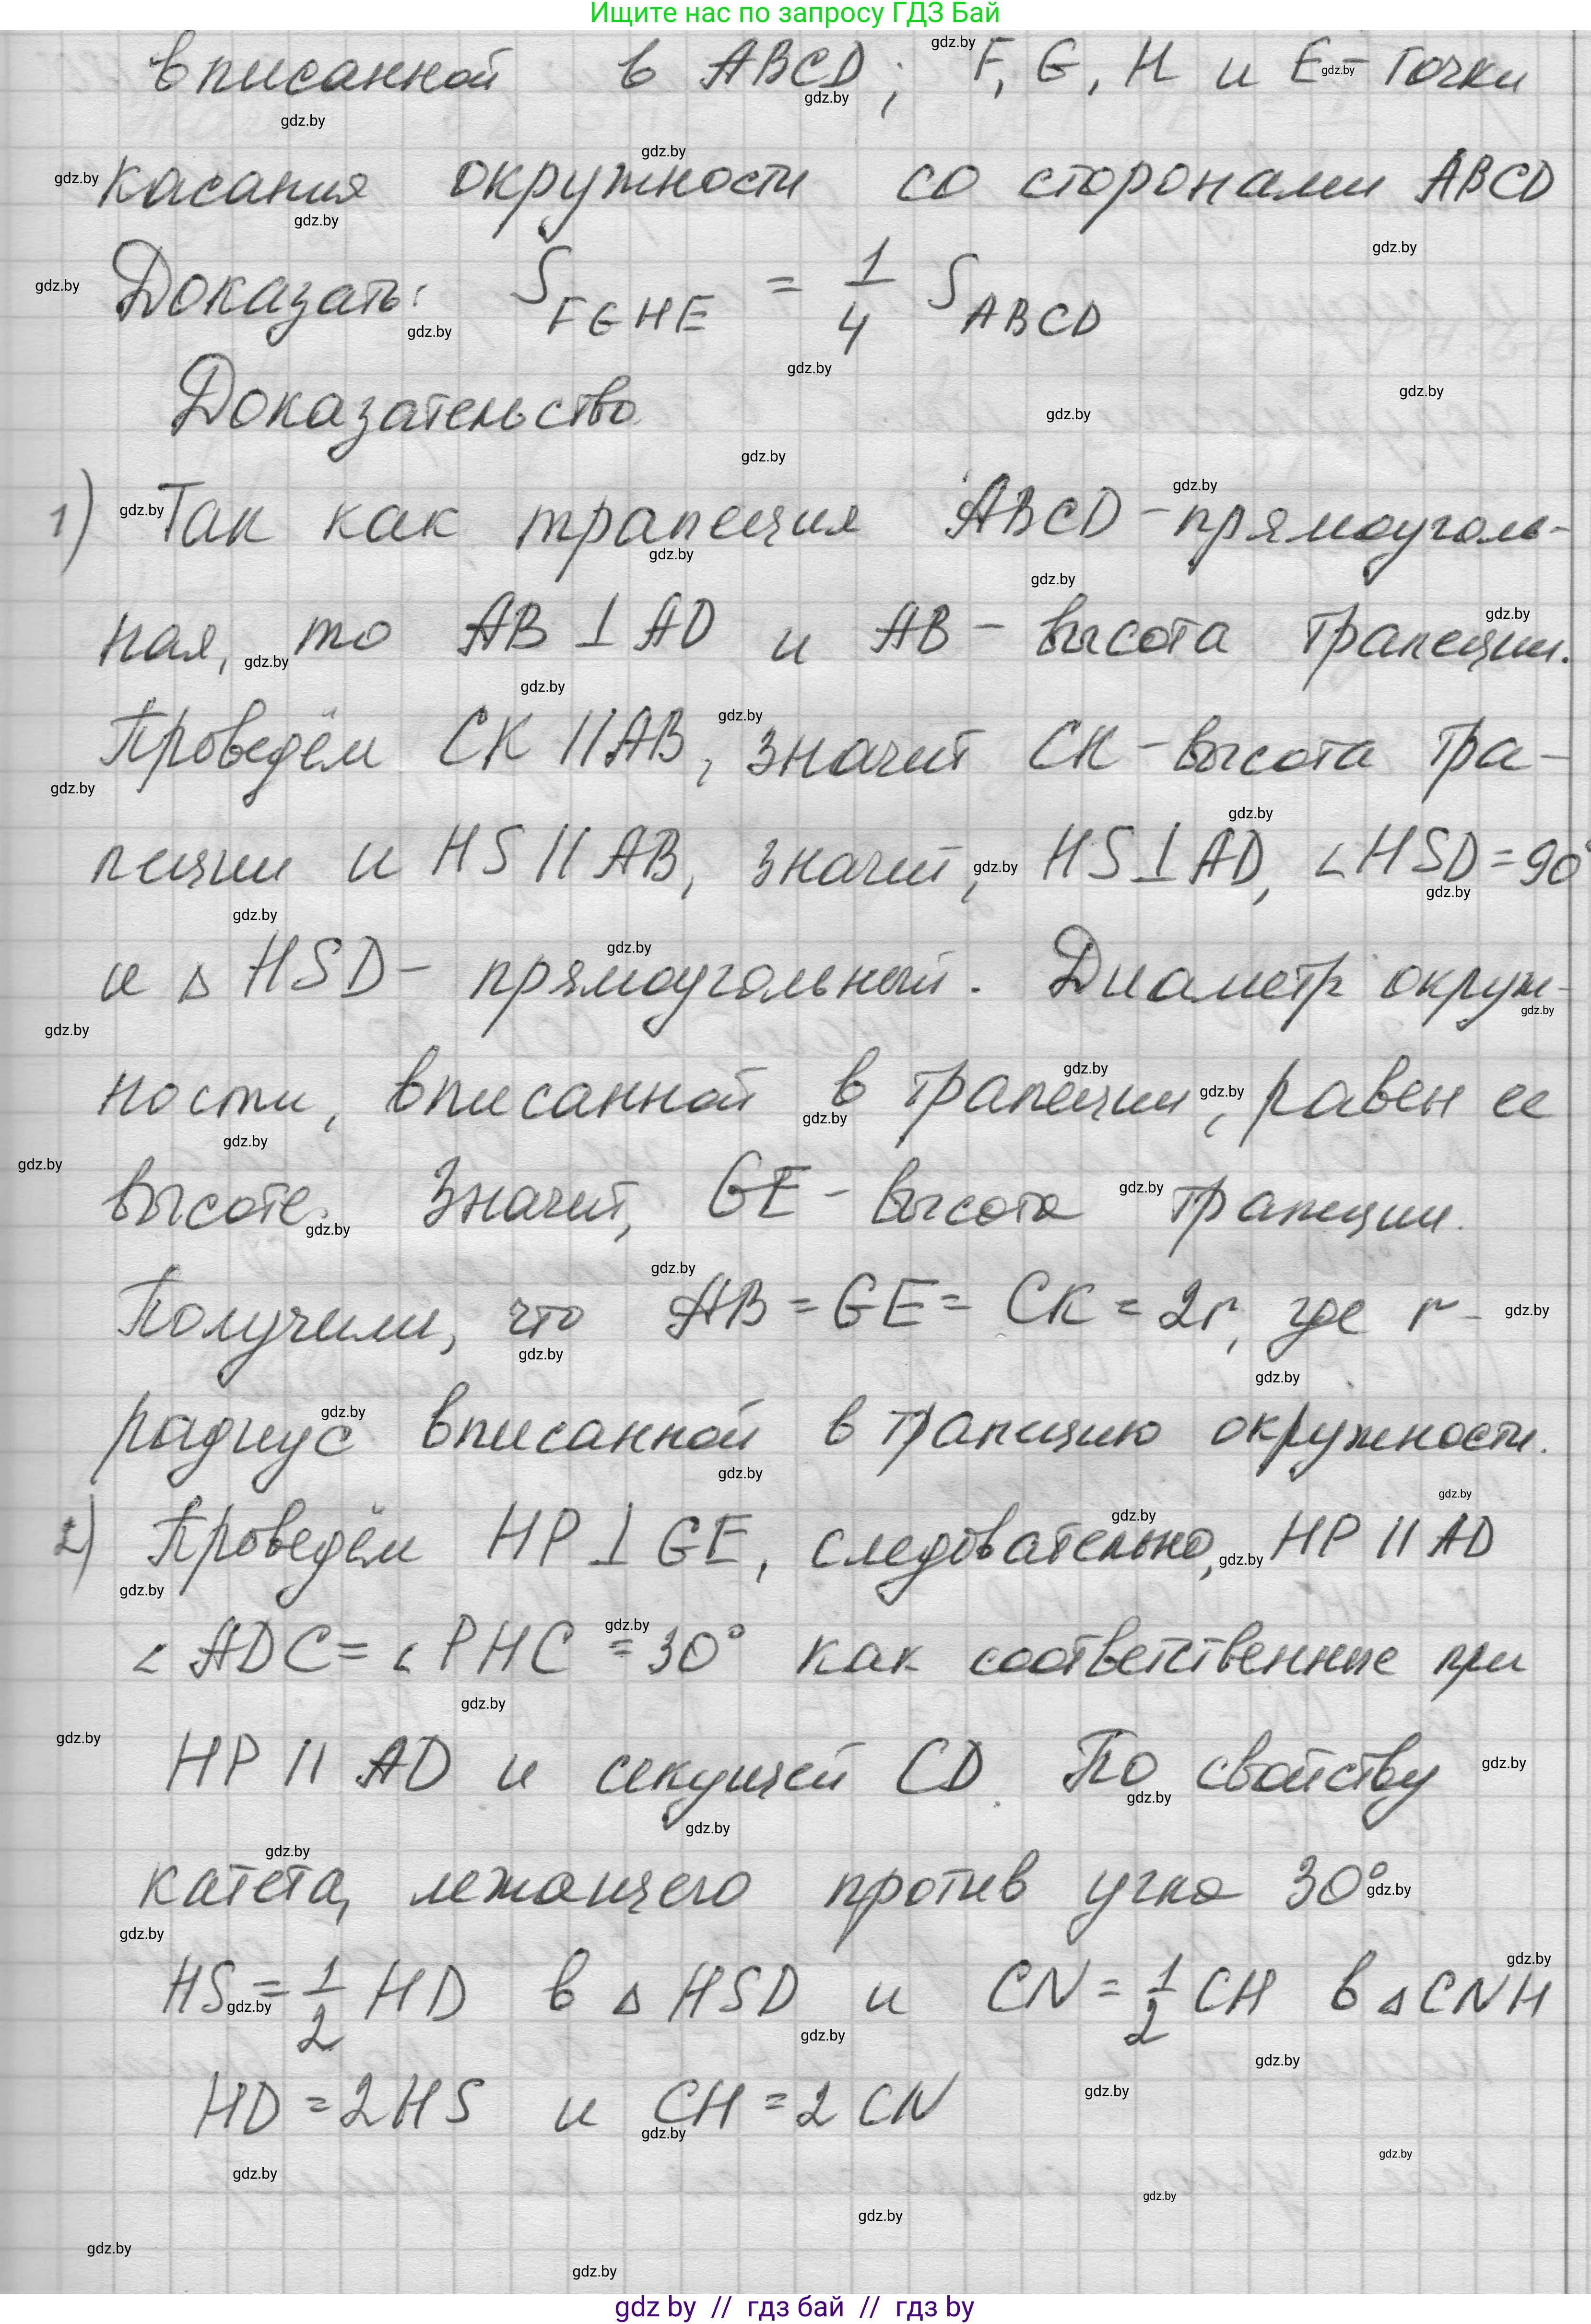 Ищите нас по запросу ГДЗ Бай
вписанной в ABCD; F, G, H и E - точки
касания окружности со сторонами ABCD
Доказать: S FGHE = 1/4 S ABCD
Доказательство.
1) Так как трапеция ABCD - прямоуголь-
ная, то AB ⊥ AD и AB - высота трапеции.
Проведём CK || AB, значит CK - высота тра-
пеции и HS || AB, значит, HS ⊥ AD, ∠HSD = 90°
и △HSD - прямоугольный. Диаметр окруж-
ности, вписанной в трапеции, равен ее
высоте. Значит, GE - высота трапеции.
Получили, что AB = GE = CK = 2r, где r -
радиус вписанной в трапецию окружности.
2) Проведём HP ⊥ GE, следовательно, HP || AD
∠ADC = ∠PHC = 30° как соответственные при
HP || AD и секущей CD. По свойству
катета, лежащего против угла 30°
HS = 1/2 HD в △HSD и CN = 1/2 CH в △CNH
HD = 2HS и CH = 2 CN
gdz by // гдз бай // гдз by